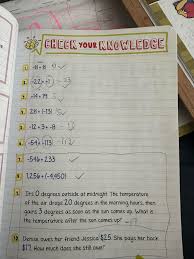 CHECK YOUR KNOWLEDGE
1. -8 + 8
2. -22 + -1
3. -14 + 19 5
4. 28 + (-13)
5. -12 + 3 + -8
6. -54 + -113
7. -546 + 233
8. 1,256 + (-4,450)
9. It's 0 degrees outside at midnight. The temperature
of the air drops 20 degrees in the morning hours, then
gains 3 degrees as soon as the sun comes up. What is
the temperature after the sun comes up?
10. Denise owes her friend Jessica $25. She pays her back
$17. How much does she still owe?